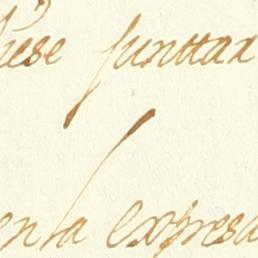 iese funttar
enta expresa